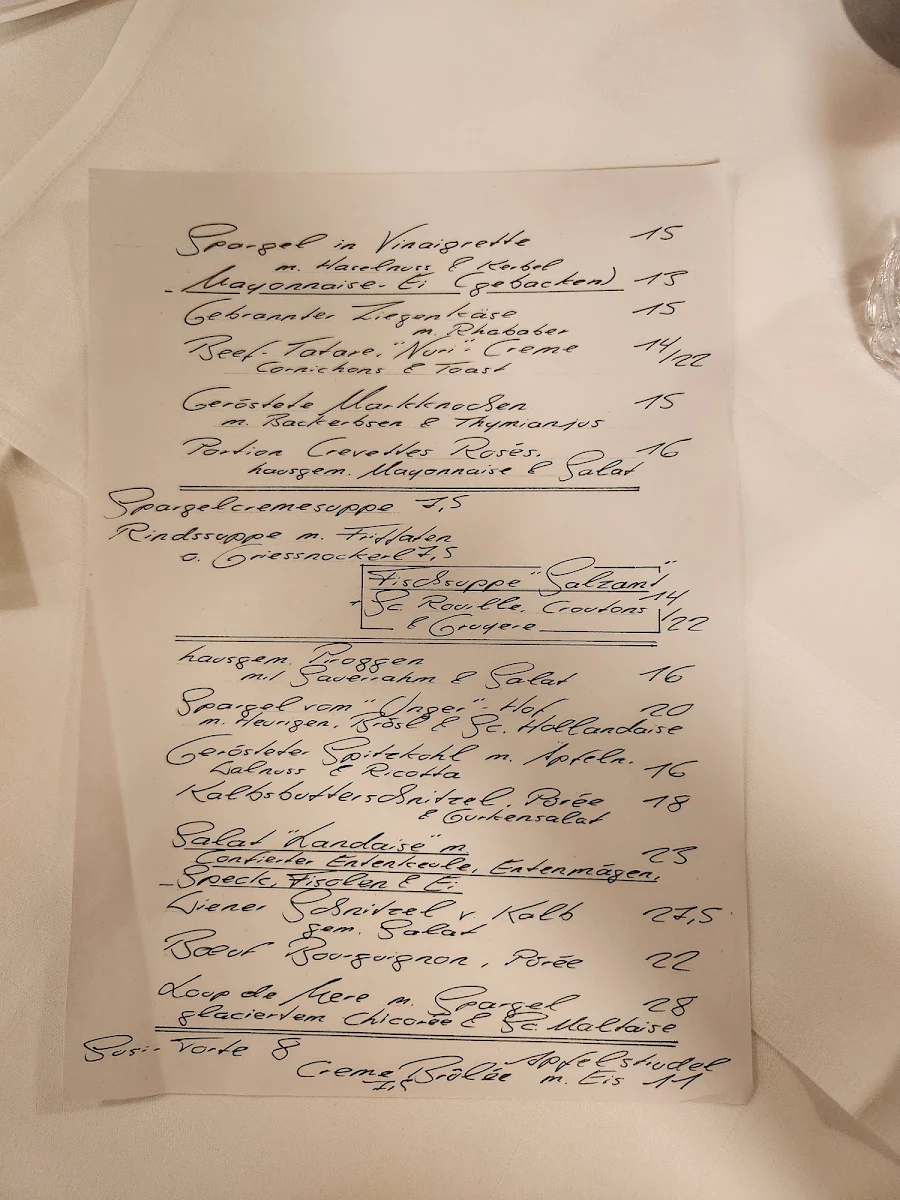 Spargel in Vinaigrette 15
m. Haselnuss & Kerbel
- Mayonnaise-Ei (gebacken) 13
Gebrannter Ziegenkäse 15
m. Rhababer
Beef-Tatare, "Nuri"-Creme 14/22
Cornichons & Toast
Geröstete Markknochen 15
m. Backerbsen & Thymianjus
Portion Crevettes Rosés, 16
hausgem. Mayonnaise & Salat
Spargelcremesuppe 7,5
Rindssuppe m. Frittaten
o. Griessnockerl 7,5
Fischsuppe "Salzamt"
+ Sc. Rouille, Croutons 14/22
& Gruyere
hausgem. Piroggen
mit Sauerrahm & Salat 16
Spargel vom "Unger"-Hof 20
m. Heurigen, Brösl & Sc. Hollandaise
Gerösteter Spitzkohl m. Äpfeln,
Walnuss & Ricotta 16
Kalbsbutterschnitzel, Pürée 18
& Gurkensalat
Salat "Landaise" m
Confierter Entenkeule, Entenmägen, 23
- Speck, Fisolen & Ei
Wiener Schnitzel v. Kalb 27,5
gem. Salat
Bœuf Bourguignon, Pürée 22
Loup de Mere m. Spargel 28
glaciertem Chicorée & Sc. Maltaise
Susi-Torte 8
Creme Brûlée 7,5
Apfelstrudel
m. Eis 11